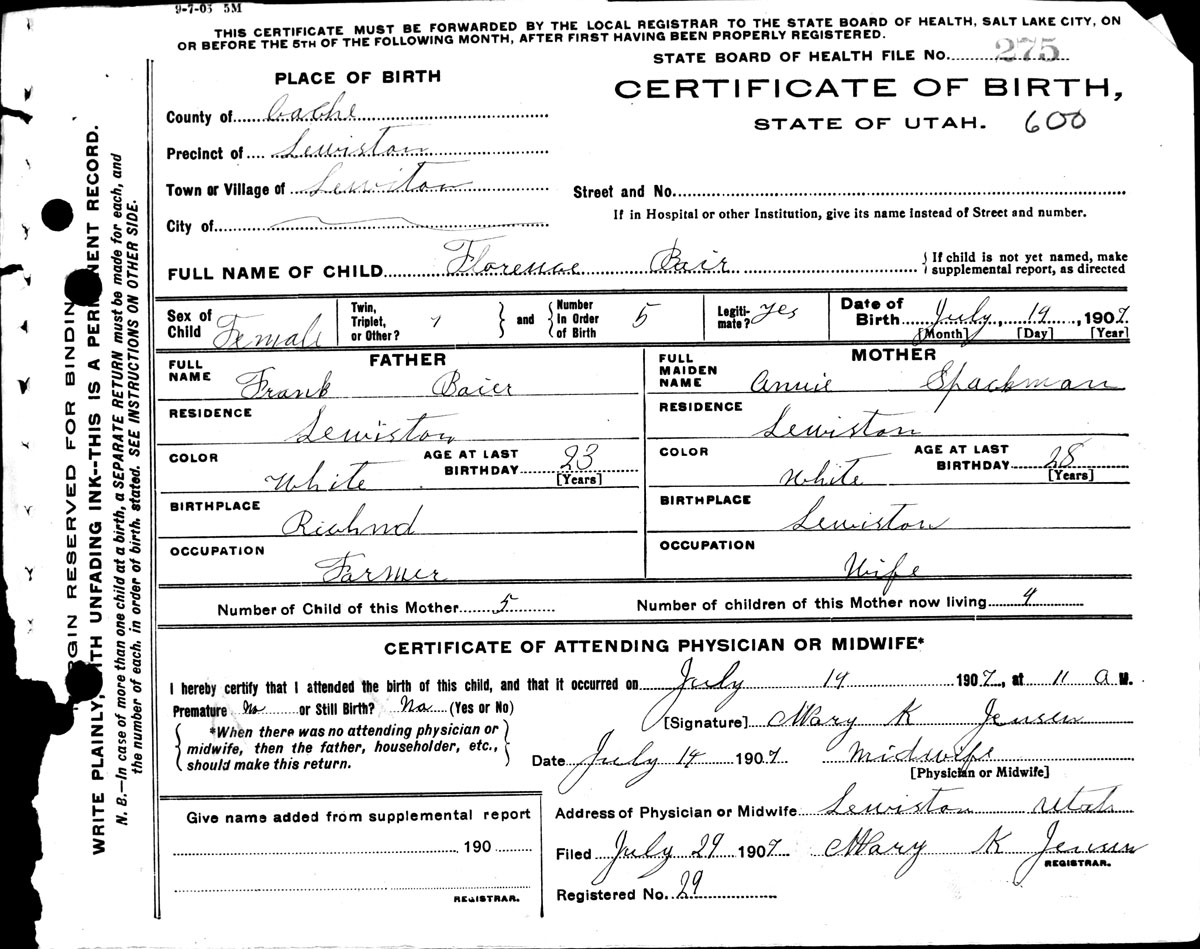 9-7-05 5M
THIS CERTIFICATE MUST BE FORWARDED BY THE LOCAL REGISTRAR TO THE STATE BOARD OF HEALTH, SALT LAKE CITY, ON
OR BEFORE THE 5TH OF THE FOLLOWING MONTH, AFTER FIRST HAVING BEEN PROPERLY REGISTERED.
STATE BOARD OF HEALTH FILE No. 275
PLACE OF BIRTH
CERTIFICATE OF BIRTH,
STATE OF UTAH. 600
County of Cache
Precinct of Lewiston
Town or Village of Lewiton
Street and No.
If in Hospital or other Institution, give its name instead of Street and number.
City of
FULL NAME OF CHILD Florence Bair
{ If child is not yet named, make
supplemental report, as directed
Sex of Child Female
Twin, Triplet, or Other?
} and { Number In Order of Birth 5
Legitimate? Yes
Date of Birth July 19, 1907
[Month] [Day] [Year]
FATHER
FULL NAME Frank Baier
RESIDENCE Lewiston
COLOR White
AGE AT LAST BIRTHDAY 23
[Years]
BIRTHPLACE Richnd
OCCUPATION Farmer
MOTHER
FULL MAIDEN NAME Annie Spackman
RESIDENCE Lewiston
COLOR White
AGE AT LAST BIRTHDAY 28
[Years]
BIRTHPLACE Lewiston
OCCUPATION Wife
Number of Child of this Mother 5
Number of children of this Mother now living 4
CERTIFICATE OF ATTENDING PHYSICIAN OR MIDWIFE*
I hereby certify that I attended the birth of this child, and that it occurred on July 19 1907, at 11 A M.
Premature No or Still Birth? No (Yes or No)
[Signature] Mary K Jensen
{ *When there was no attending physician or
midwife, then the father, householder, etc.,
should make this return. }
Date July 19 1907 Midwife
[Physician or Midwife]
Address of Physician or Midwife Lewiston Utah
Filed July 29 1907 Mary K Jensen
REGISTRAR.
Registered No. 29
Give name added from supplemental report
190
REGISTRAR.
MARGIN RESERVED FOR BINDING
WRITE PLAINLY, WITH UNFADING INK--THIS IS A PERMANENT RECORD.
N. B.—In case of more than one child at a birth, a SEPARATE RETURN must be made for each, and
the number of each, in order of birth, stated. SEE INSTRUCTIONS ON OTHER SIDE.